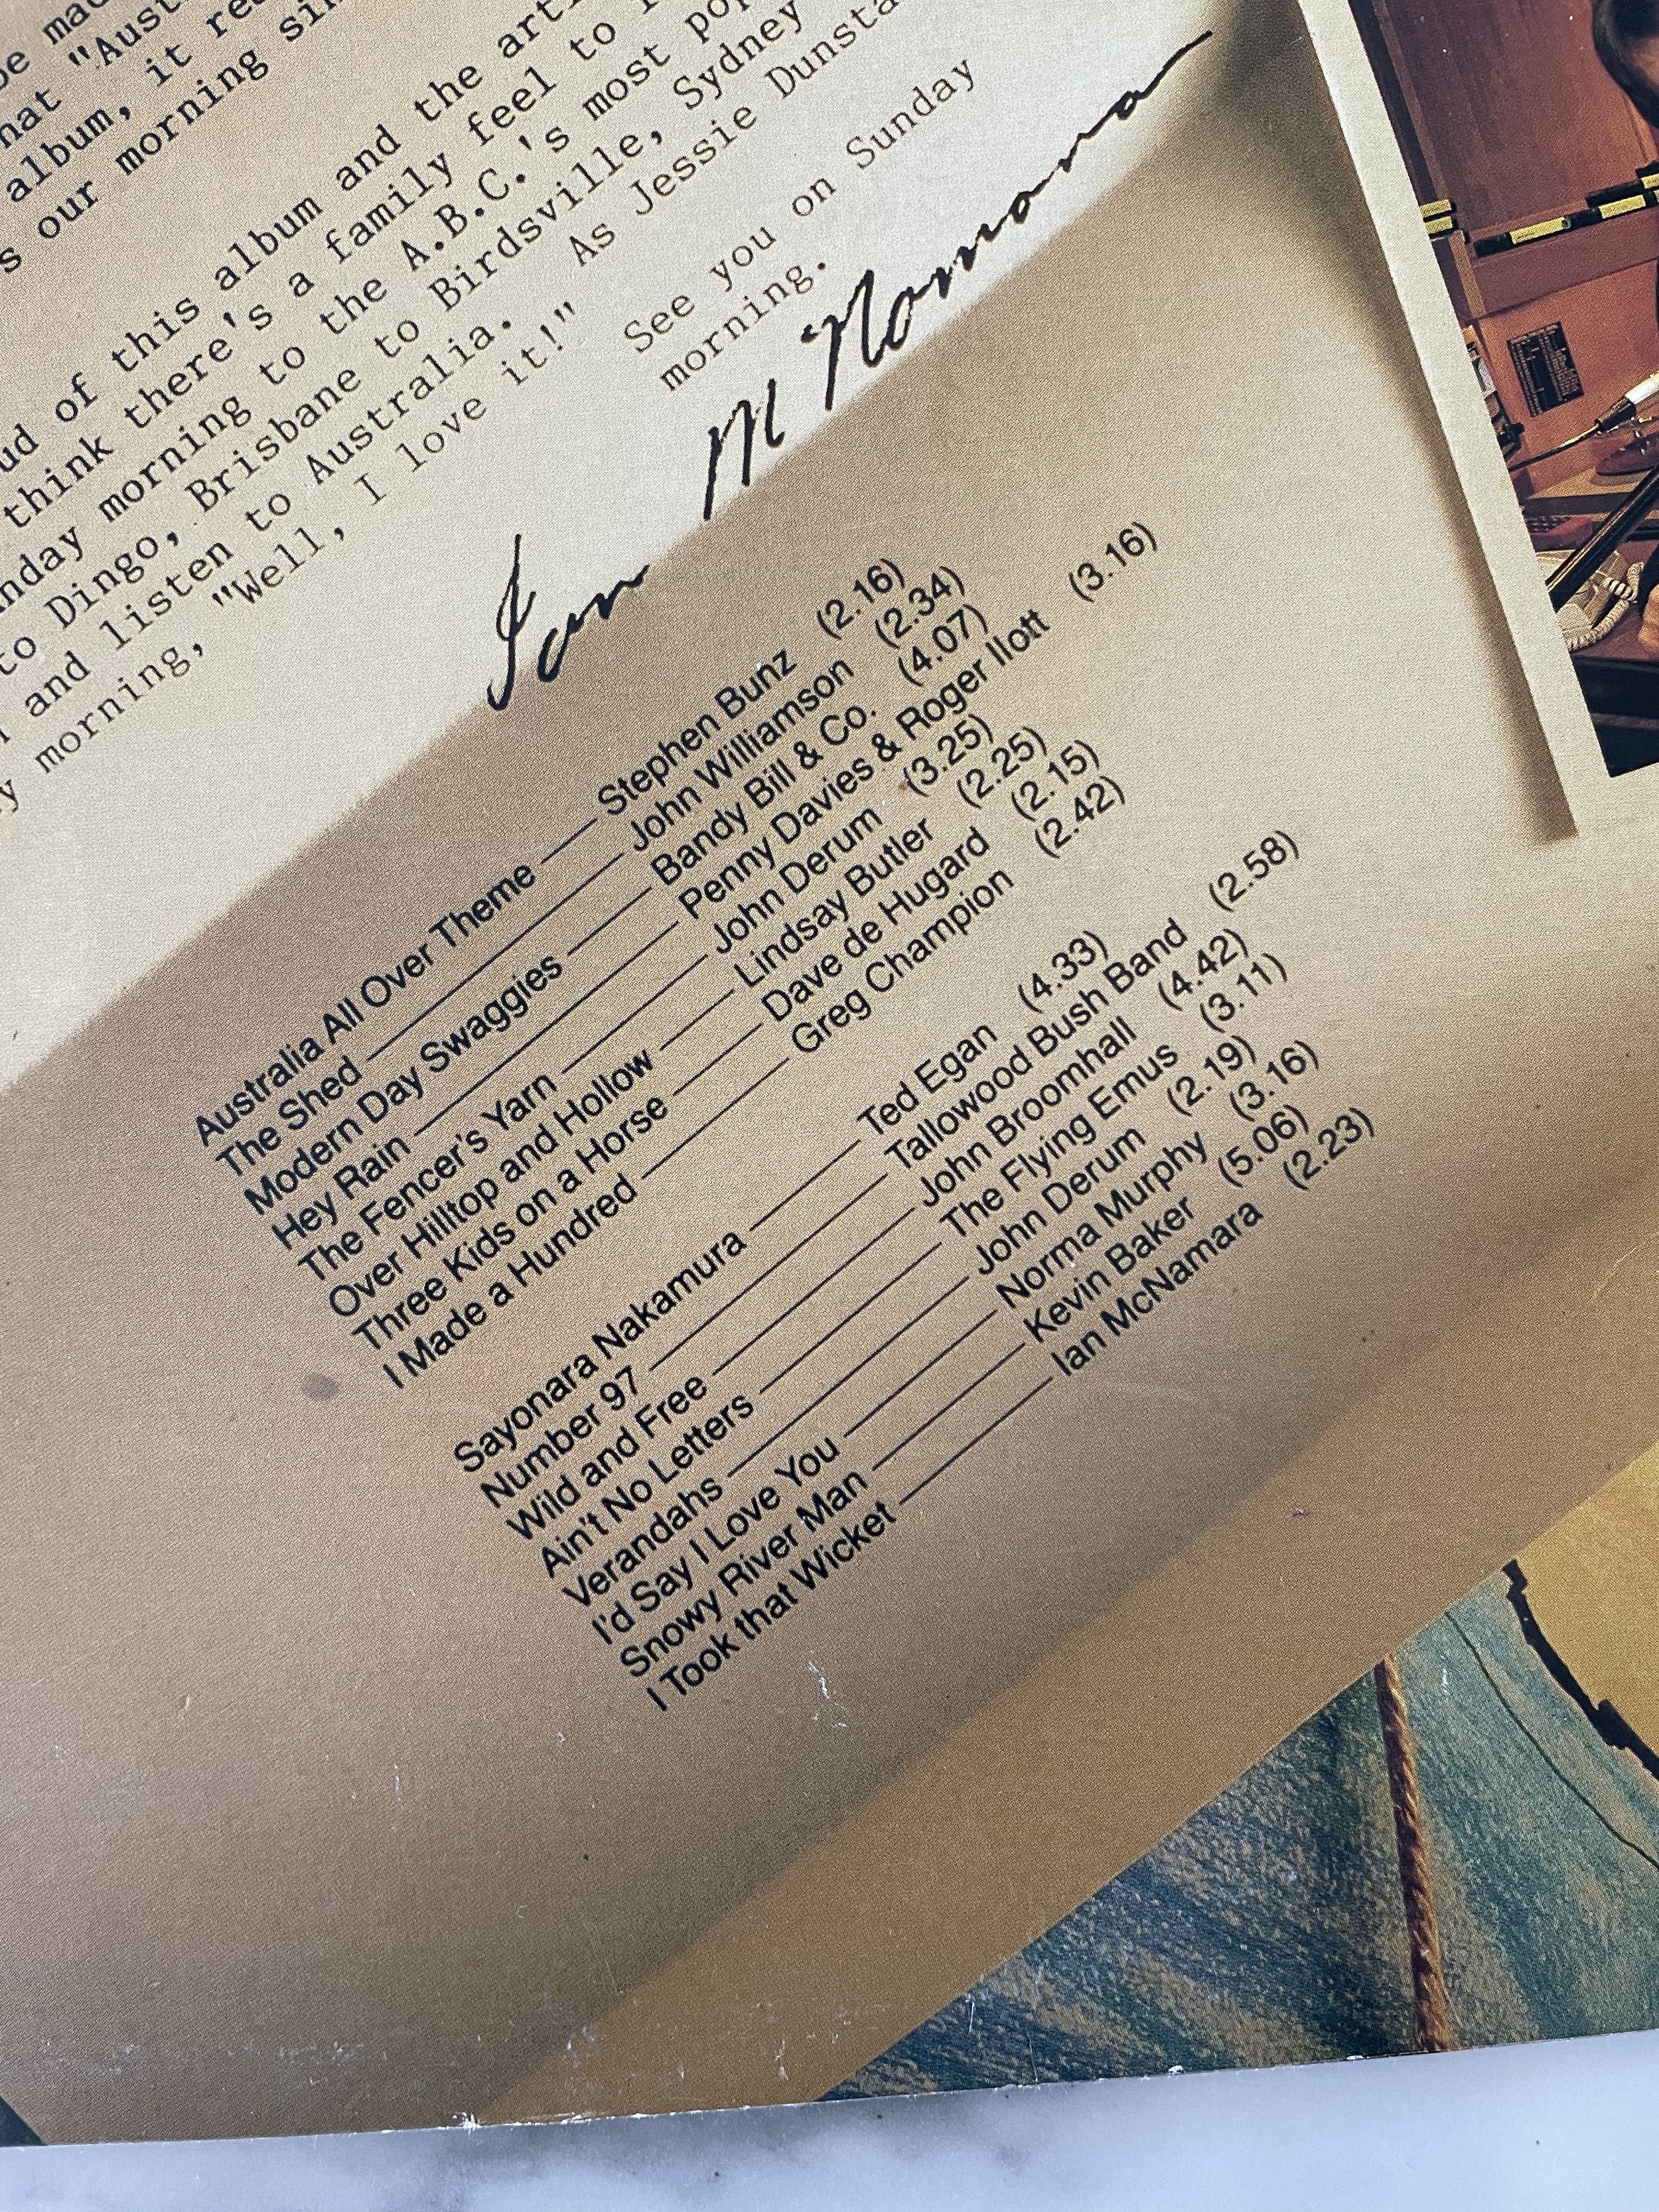 "Aust
album, it
our morning
of this album and the
think there's a family feel to
morning to the A.B.C.'s most
to Dingo, Brisbane to Birdsville, Sydney
and listen to Australia. As Jessie
morning, "Well, I love it!"
See you on Sunday
morning.
Ian McNamara
Australia All Over Theme — Stephen Bunz (2.16)
The Shed — John Williamson (2.34)
Modern Day Swaggies — Bandy Bill & Co. (4.07)
Hey Rain — Penny Davies & Roger Ilott (3.16)
The Fencer's Yarn — John Derum (3.25)
Over Hilltop and Hollow — Lindsay Butler (2.25)
Three Kids on a Horse — Dave de Hugard (2.15)
I Made a Hundred — Greg Champion (2.42)
Sayonara Nakamura — Ted Egan (4.33)
Number 97 — Tallowood Bush Band (2.58)
Wild and Free — John Broomhall (4.42)
Ain't No Letters — The Flying Emus (3.11)
Verandahs — John Derum (2.19)
I'd Say I Love You — Norma Murphy (3.16)
Snowy River Man — Kevin Baker (5.06)
I Took that Wicket — Ian McNamara (2.23)